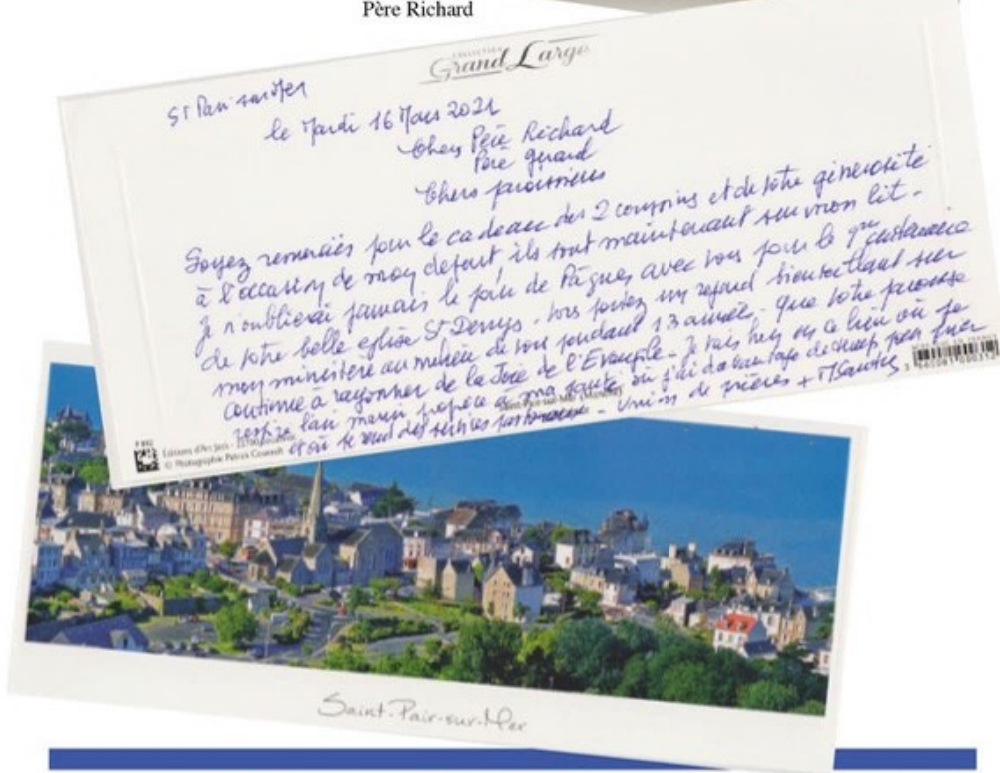 Père Richard
COLLECTION
Grand Large
St Pair sur Mer
le Mardi 16 Mars 2021
Chers Père Richard
Père Gérard
Chers paroissiens
Soyez remerciés pour le cadeau des 2 coussins et de votre générosité
à l'occasion de mon départ ils sont maintenant sur mon lit.
Je n'oublierai jamais le jour de Pâques avec vous pour le
de votre belle église St Denys. Vous portez un regard bienveillant sur
mon ministère au milieu de vous pendant 13 année. Que votre paroisse
continue à rayonner de la Joie de l'Evangile. Je suis hrs en ce lieu où je
respire l'air marin propice à ma santé où j'ai davantage de temps pour prier
et où je rend des services Union de prières +
Editions d'Art Jack
© Photographie Patrick
Saint-Pair-sur-Mer